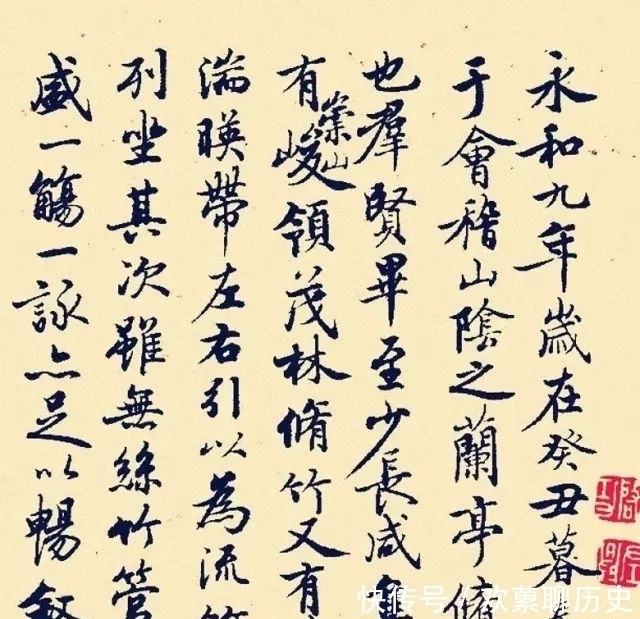 永和九年歲在癸丑暮
于會稽山陰之蘭亭脩
也羣賢畢至少長咸
有崇山峻領茂林脩竹又有
湍暎帶左右引以為流
列坐其次雖無絲竹管
盛一觴一詠亦足以暢敘
快传号/欢蕞聊历史